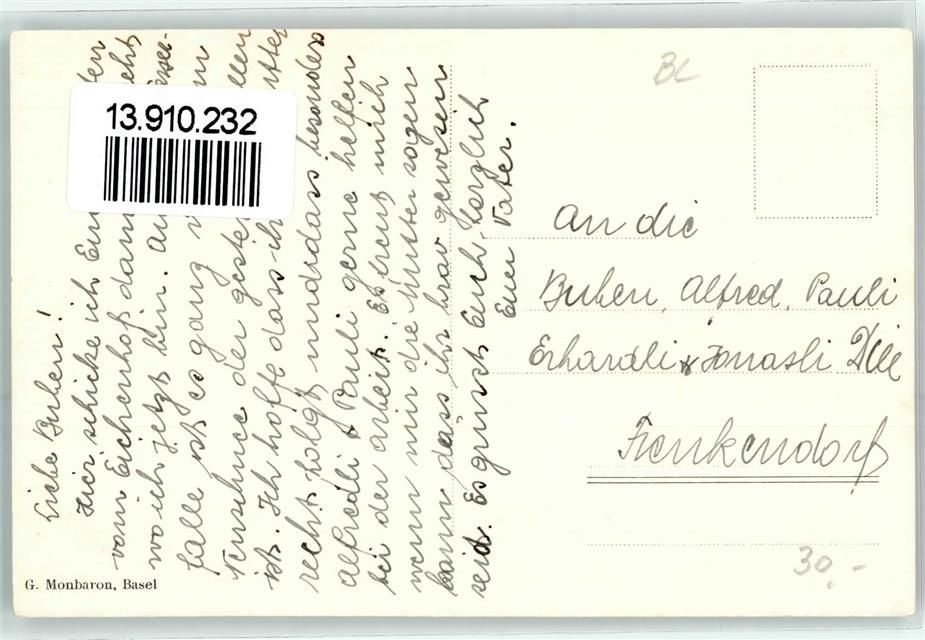 Liebe Buben!
Hier schicke ich Eu
vom Eichenhof dam
wo ich jetzt bin. Au
falle ist es ganz
Neuschnee der geste
ist. Ich hoffe dass ih
recht folgt und dass besonders
Alfredli & Pauli gerne helfen
bei der arbeit. Es freut mich
wenn mir die Mutter sagen
kann dass ihr brav gewesen
seid. Es grüsst Euch herzlich
Euer Vater.
13.910.232
BL
An die
Buben, Alfred, Pauli
Erhardli & Jonasli Dill
Frenkendorf
30.-
G. Monbaron, Basel